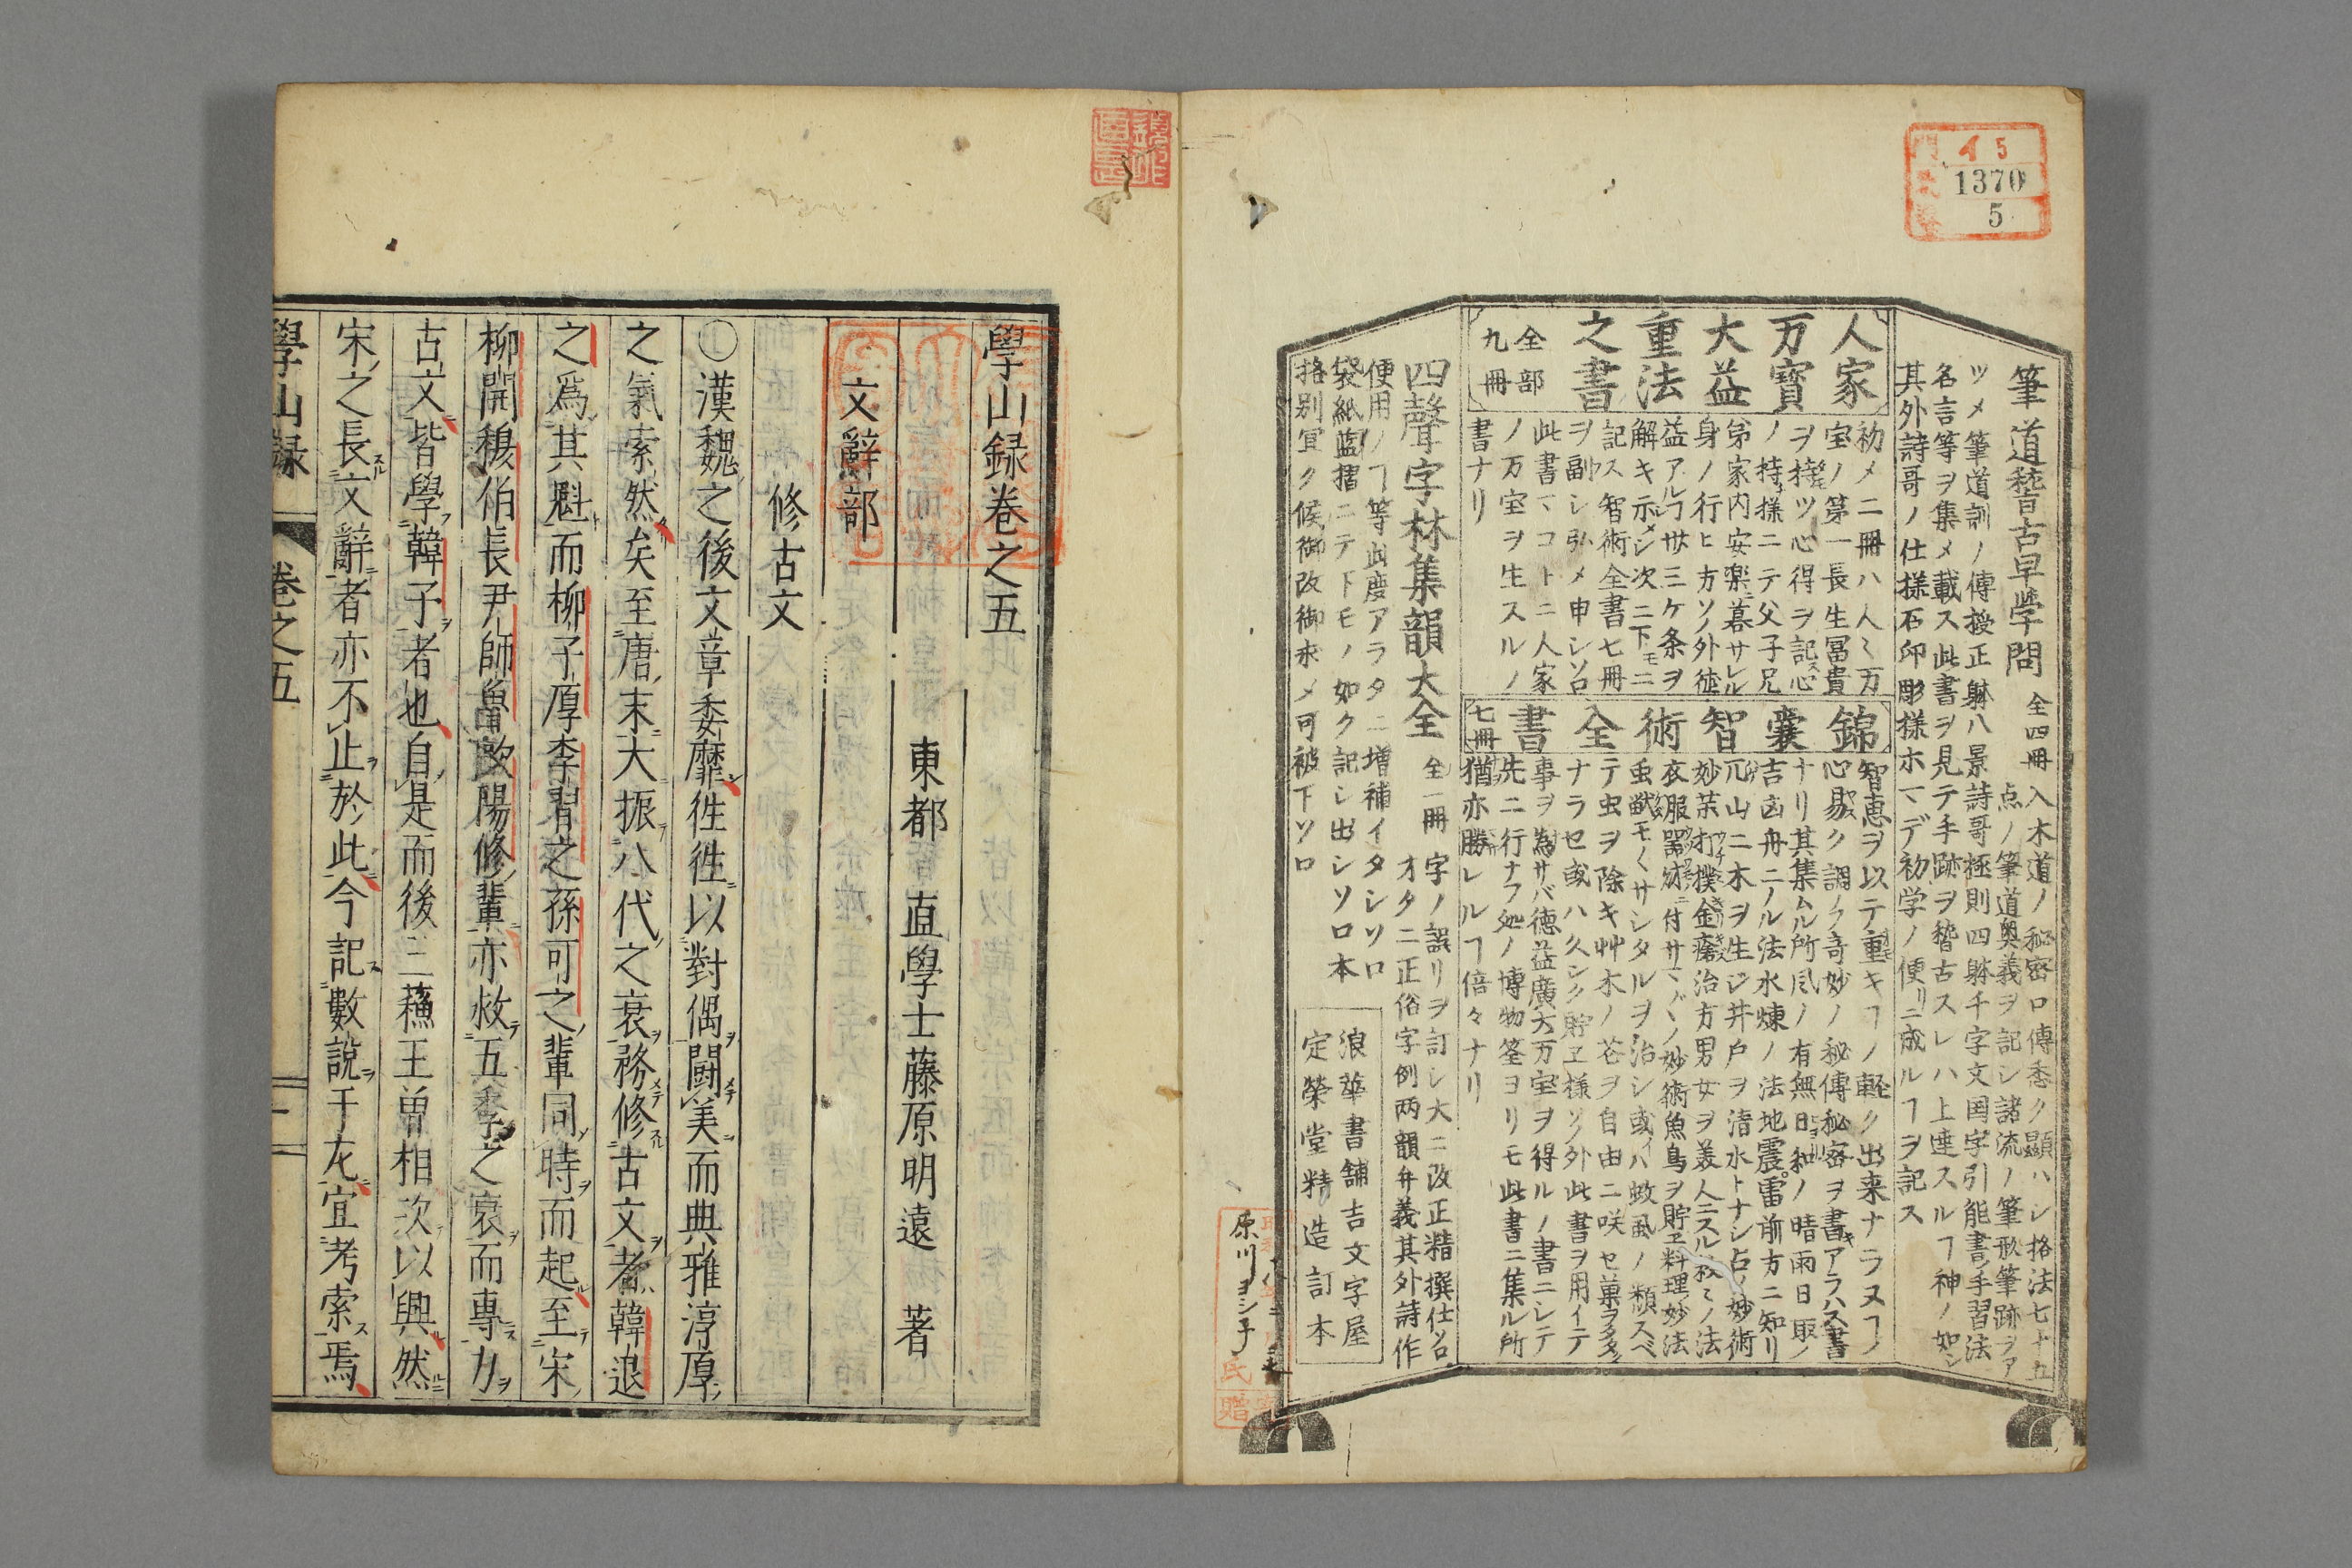 イ5
1370
5
筆道稽古早学問 全四冊
入木道ノ秘密口傳悉ク顯ハシ格法七十五
点ノ筆道奥義ヲ記シ諸流ノ筆形筆跡ヲア
ツメ筆道訓ノ傳授正躰八景詩哥極則四躰千字文国字引能書手習法
名言等ヲ集メ載ス此書ヲ見テ手跡ヲ稽古スレハ上達スルヿ神ノ如シ
其外詩哥ノ仕様石印彫様ホマデ初学ノ便リニ成ルヿヲ記ス
人家
万寳
大益
重法
之書
全部
九冊
初メ二冊ハ人〻万
宝ノ第一長生冨貴
ヲ持ツ心得ヲ記ス心
ノ持様ニテ父子兄
弟家内安楽ニ暮サレル
身ノ行ヒ方ソノ外徳
益アルヿ廿三ケ条ヲ
解キ示メシ次ニ下モニ
記ス智術全書七冊
ヲ副シ弘メ申シソロ
此書マコトニ人家
ノ万宝ヲ生スルノ
書ナリ
錦
嚢
智
術
全
書
七冊
智恵ヲ以テ重キヿノ軽ク出来ナラヌヿノ
心易ク調ノフ奇妙ノ秘傳秘密ヲ書キアラハス書
ナリ其集ムル所風ノ有無日和ノ晴雨日取ノ
吉凶舟ニノル法水煉ノ法地震雷前方ニ知リ
兀山ニ木ヲ生シ井戸ヲ清水トナシ占ノ妙術
妙薬打撲金瘡治方男女ヲ美人ニスル救〻ノ法
衣服器財ニ付サマ〲ノ妙術魚鳥ヲ貯ヱ料理妙法
虫獣モ〱サシタルヲ治シ或ハ蚊虱ノ類スベ
テ虫ヲ除キ艸木ノ花ヲ自由ニ咲セ菓ヲ多ク
ナラセ或ハ久シク貯ヱ様ソノ外此書ヲ用イテ
事ヲ為サバ徳益廣大万宝ヲ得ルノ書ニシテ
先ニ行ナフ処ノ博物筌ヨリモ此書ニ集ル所
猶亦勝レルヿ倍々ナリ
四聲字林集韻大全 全一冊
字ノ誤リヲ訂シ大ニ改正精撰仕ソロ
オタ二正俗字例两韻弁義其外詩作
便用ノヿ等此度アラタニ増補イタシソロ
袋紙藍摺ニテ下モノ如ク記シ出シソロ本
格別宜ク候御改御求メ可被下ソロ
浪華書舗吉文字屋
定榮堂精造訂本
原川ヨシ子
學山録卷之五
東都 直學士藤原明遠 著
文辭部
修古文
〇漢魏之後文章委靡徃徃以對偶闘美而典雅淳厚
之氣索然矣至唐末大振八代之衰務修古文者韓退
之爲其魁而柳子厚李習之孫可之之輩同時而起至宋
柳開穆伯長尹師魯歐陽修輩亦救五季之衰而專力
古文皆學韓子者也自是而後三蘓王曽相次以興然
宋之長文辭者亦不止於此今記數說于左宜考索焉
學山録 卷之五 一